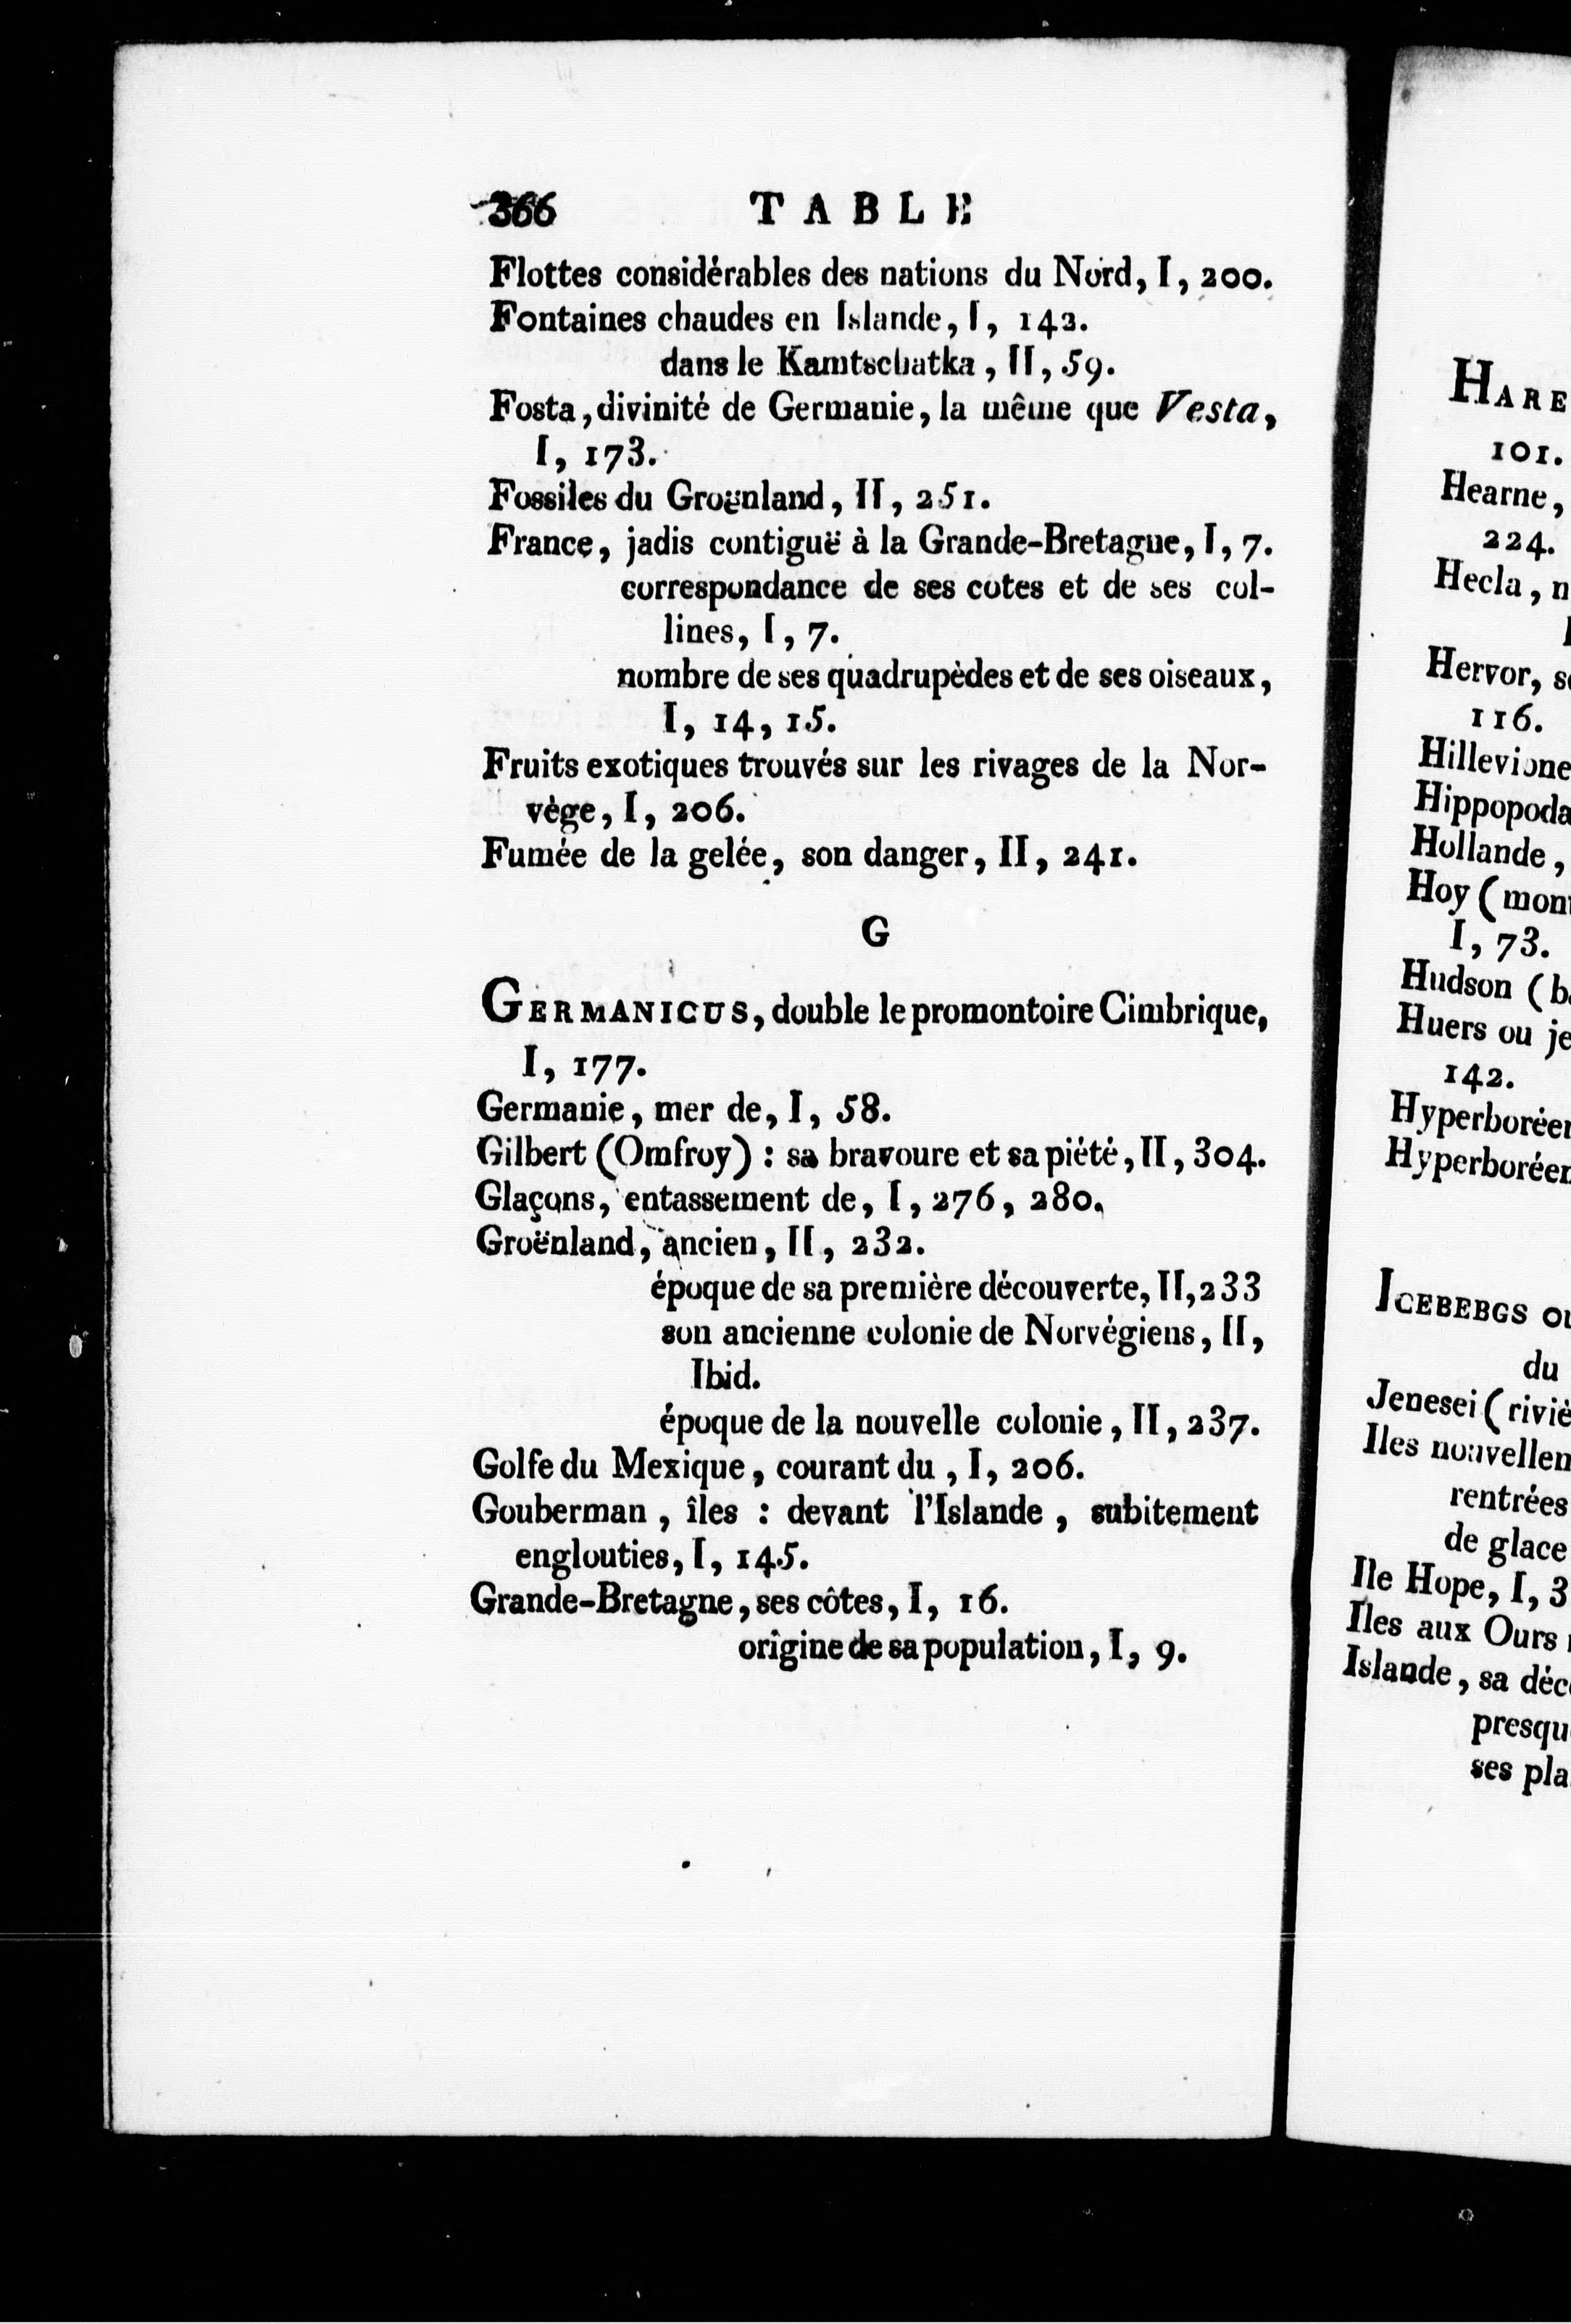 366 TABLE
Flottes considérables des nations du Nord, I, 200.
Fontaines chaudes en Islande, I, 142.
dans le Kamtschatka, II, 59.
Fosta, divinité de Germanie, la même que Vesta,
I, 173.
Fossiles du Groënland, II, 251.
France, jadis contiguë à la Grande-Bretagne, I, 7.
correspondance de ses cotes et de ses col-
lines, I, 7.
nombre de ses quadrupèdes et de ses oiseaux,
I, 14, 15.
Fruits exotiques trouvés sur les rivages de la Nor-
vège, I, 206.
Fumée de la gelée, son danger, II, 241.
G
GERMANICUS, double le promontoire Cimbrique,
I, 177.
Germanie, mer de, I, 58.
Gilbert (Omfroy) : sa bravoure et sa piété, II, 304.
Glaçons, entassement de, I, 276, 280.
Groënland, ancien, II, 232.
époque de sa première découverte, II, 233
son ancienne colonie de Norvégiens, II,
Ibid.
époque de la nouvelle colonie, II, 237.
Golfe du Mexique, courant du, I, 206.
Gouberman, îles : devant l'Islande, subitement
englouties, I, 145.
Grande-Bretagne, ses côtes, I, 16.
origine de sa population, I, 9.
HARE
101.
Hearne,
224.
Hecla, n
Hervor, s
116.
Hillevione
Hippopoda
Hollande,
Hoy (mon
I, 73.
Hudson (b
Huers ou je
142.
Hyperborée
Hyperborée
ICEBEBGS ou
du
Jenesei (riviè
Iles nouvellem
rentrées
de glace
Ile Hope, I, 3
Iles aux Ours
Islande, sa déc
presqu
ses pla